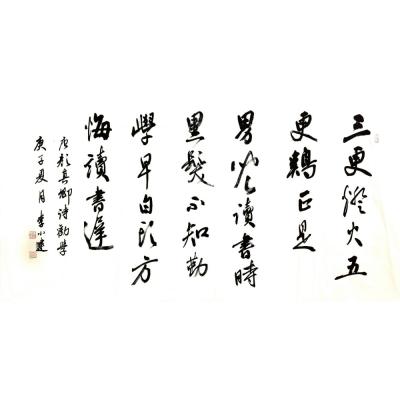 三更燈火五
更鷄正是
男兒讀書時
黑髮不知勤
學早白頭方
悔讀書遲
唐顏真卿詩勸學
庚子夏月李小